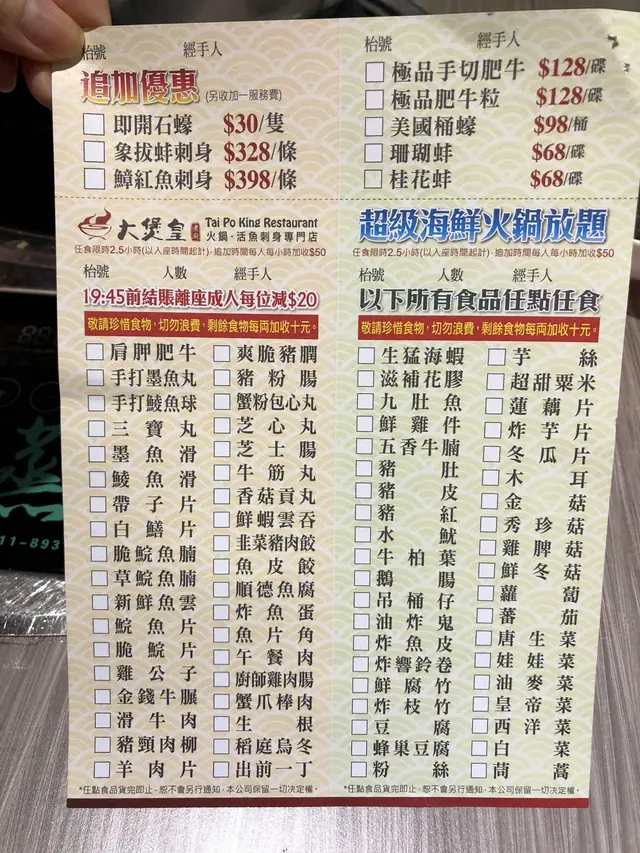 枱號 經手人
追加優惠 (另收加一服務費)
即開石蠔 $30/隻
象拔蚌刺身 $328/條
鱆紅魚刺身 $398/條
枱號 經手人
極品手切肥牛 $128/碟
極品肥牛粒 $128/碟
美國桶蠔 $98/桶
珊瑚蚌 $68/碟
桂花蚌 $68/碟
大煲皇 Tai Po King Restaurant
火鍋·活魚刺身專門店
任食限時2.5小時(以人座時間起計)·追加時間每人每小時加收$50
枱號 人數 經手人
19:45前結賬離座成人每位減$20
敬請珍惜食物,切勿浪費,剩餘食物每両加收十元。
肩胛肥牛
手打墨魚丸
手打鯪魚球
三寶丸
墨魚滑
鯪魚滑
帶子片
白鱔片
脆鯇魚腩
草鯇魚腩
新鮮魚雲
鯇魚片
脆鯇片
雞公子
金錢牛𦟌
滑牛肉
豬頸肉柳
羊肉片
爽脆豬膶
豬粉腸
蟹粉包心丸
芝心丸
芝士腸
牛筋丸
香菇貢丸
鮮蝦雲吞
韭菜豬肉餃
魚皮餃
順德魚腐
炸魚蛋
魚片角
午餐肉
廚師雞肉腸
蟹爪棒肉
生根
稻庭烏冬
出前一丁
*任點食品貨完即止,恕不會另行通知,本公司保留一切決定權。
超級海鮮火鍋放題
任食限時2.5小時(以人座時間起計)·追加時間每人每小時加收$50
枱號 人數 經手人
以下所有食品任點任食
敬請珍惜食物,切勿浪費,剩餘食物每両加收十元。
生猛海蝦
滋補花膠
九肚魚
鮮雞件
五香牛腩
豬肚
豬皮
豬紅
水魷
牛柏葉
鵝腸
吊桶仔
油炸鬼
炸魚皮
炸響鈴卷
鮮腐竹
炸枝竹
豆腐
蜂巢豆腐
粉絲
芋絲
超甜粟米
蓮藕片
炸芋片
冬瓜片
木耳
金菇
秀珍菇
雞脾菇
鮮冬菇
蘿蔔
蕃茄
唐生菜
娃娃菜
油麥菜
皇帝菜
西洋菜
白菜
茼蒿
*任點食品貨完即止,恕不會另行通知,本公司保留一切決定權。
11-893